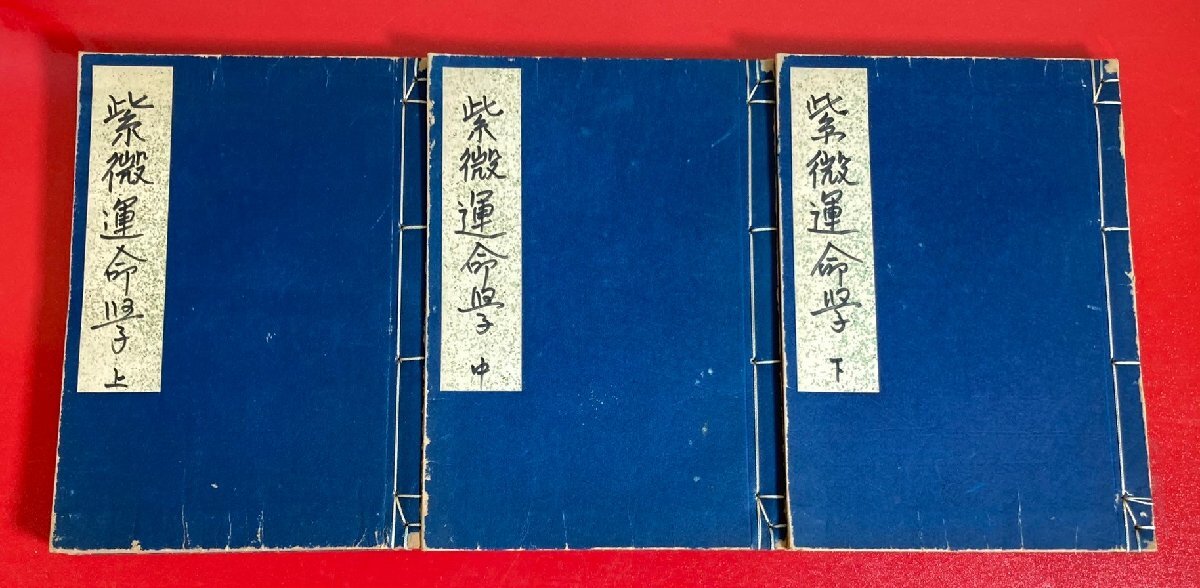 紫微運命学 上
紫微運命学 中
紫微運命学 下